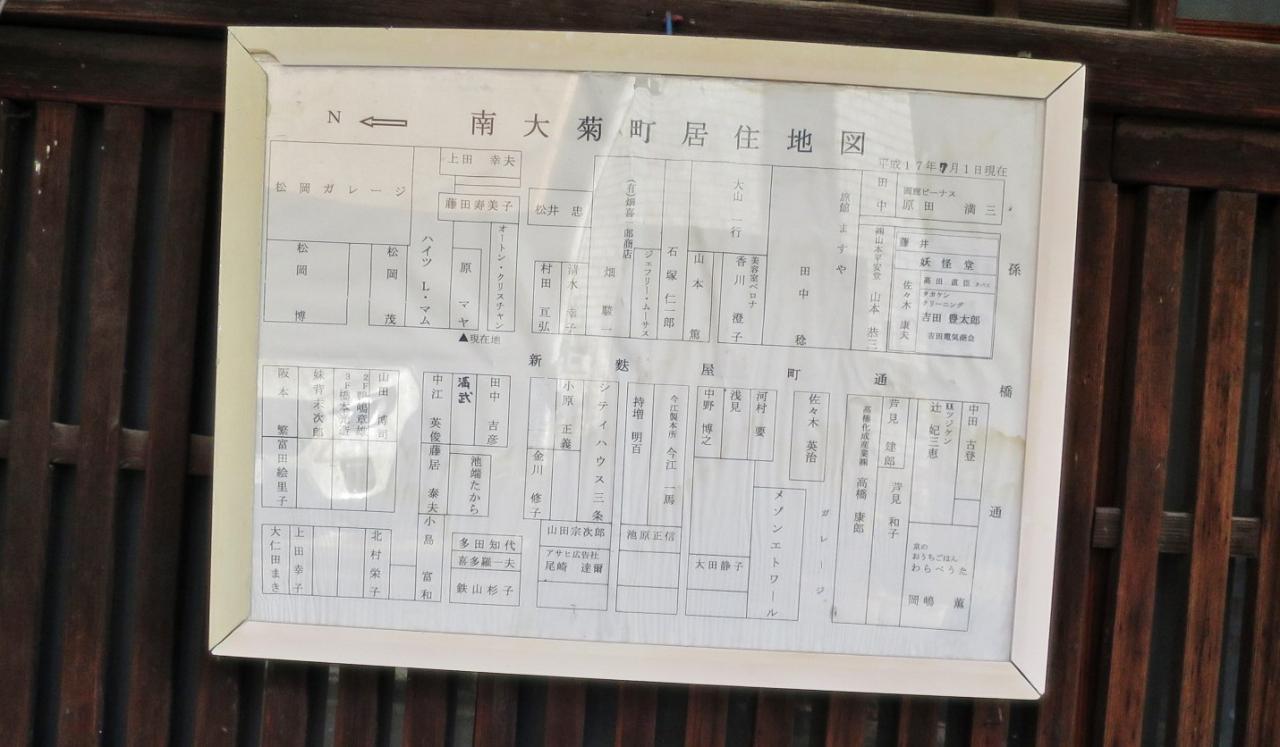 N
南大菊町居住地図
平成17年7月1日現在
松岡ガレージ
松岡 博
松岡 茂
ハイツ L・マム
上田 幸夫
藤田寿美子
原 マヤ
オートン・クリスチャン
▲現在地
松井 忠
村田 亘弘
清水 幸子
(有)畑喜一郎商店
畑 駿一
ジェフリー・ムーサス
石塚 仁一郎
山本 篤
大山 一行
美容室ベロナ
香川 澄子
田中 稔
旅館 ますや
田中
画廊ビーナス
原田 満三
山本平安堂
山本 恭三
藤井
妖怪堂
佐々木 康夫
高田 直臣
タカケン
クリーニング
吉田 豊太郎
吉田電気商会
孫
橋
通
新麩屋町通
阪本 繁
妹背末次郎
山田 博司
富田絵里子
大仁田まき
上田幸子
北村栄子
中江 英俊
田中 吉彦
藤居 泰夫
池端たから
小島 富和
多田知代
喜多羅一夫
鉄山杉子
小原 正義
金川 修子
シティハウス三条
山田宗次郎
アサヒ広告社
尾崎 達爾
持増 明百
今江製本所 今江 一馬
池原正信
中野 博之
浅見
河村 要
大田静子
メゾンエトワール
佐々木 英治
ガレージ
高橋化成産業㈱ 高橋 康郎
芦見 建郎
芦見 和子
ツジケン
辻 妃三恵
中田 古登
京の
おうちごはん
わらべうた
岡嶋 薫